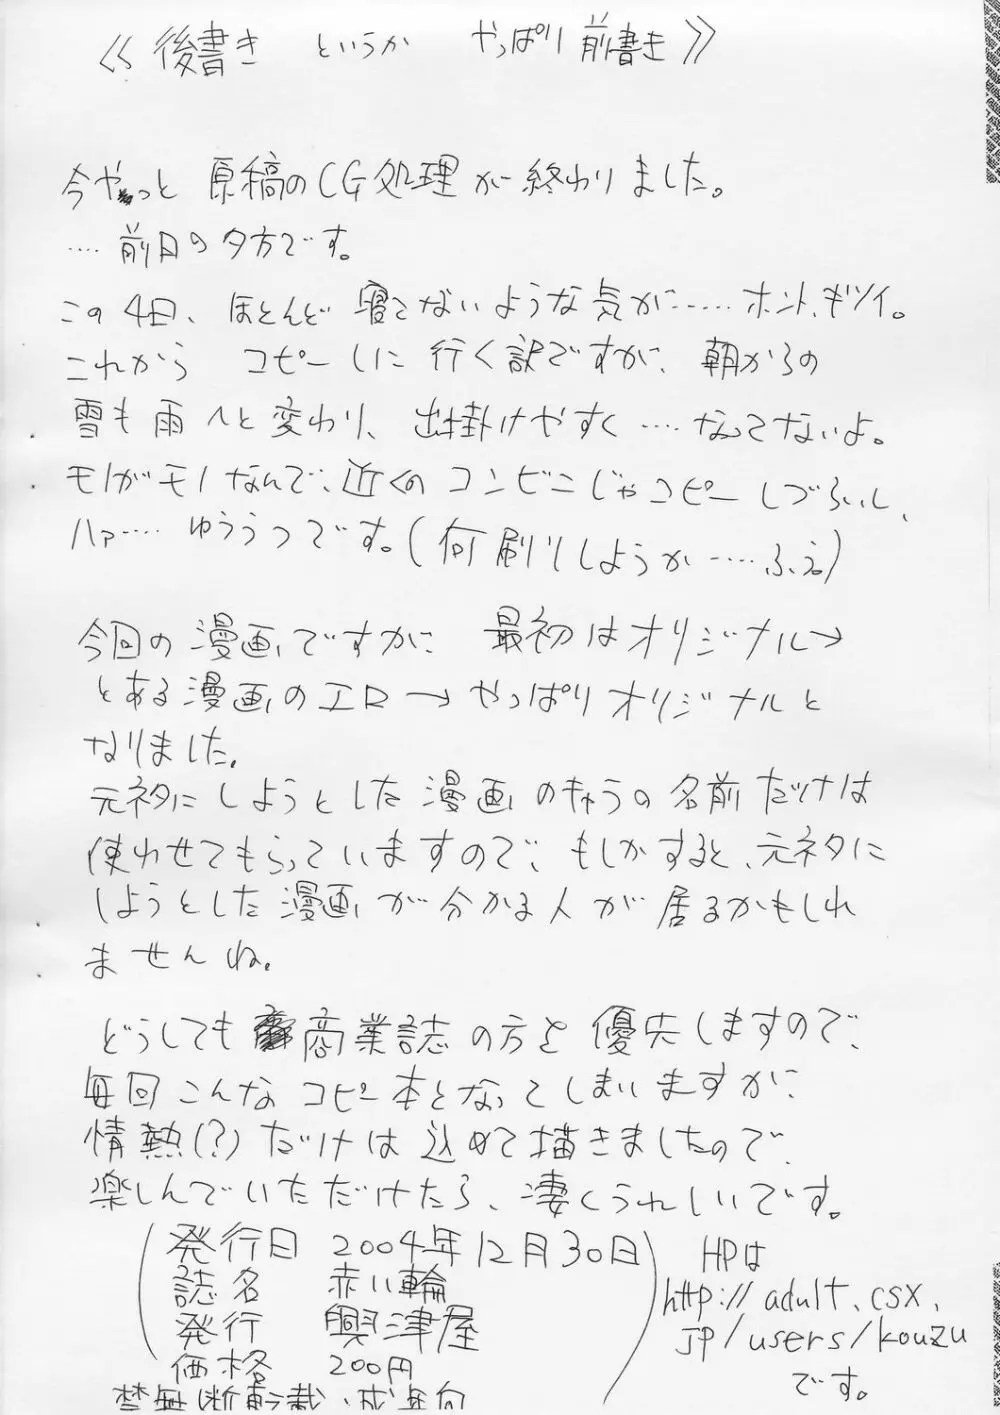 《 後書き というか やっぱり前書き 》
今やっと 原稿のCG処理が終わりました。
‥‥前日の夕方です。
この4日、ほとんど寝てないような気が‥‥‥ホント、キツイ。
これから コピーしに行く訳ですが、朝からの
雪も雨へと変わり、出掛けやすく‥‥なってないよ。
モノがモノなんで、近くのコンビニじゃコピーしづらいし、
ハァ‥‥ゆううつです。(何刷りしようか‥‥‥ふぇ。)
今回の漫画ですが、最初はオリジナル→
とある漫画のエロ→やっぱりオリジナルと
なりました。
元ネタにしようとした漫画のキャラの名前だけは
使わせてもらっていますので、もしかすると、元ネタに
しようとした漫画が分かる人が居るかもしれ
ませんね。
どうしても商業誌の方を優先しますので、
毎回こんなコピー本となってしまいますが、
情熱(?)だけは込めて描きましたので、
楽しんでいただけたら、凄くうれしいです。
(発行日 2004年12月30日)
誌名 赤い輪
発行 興津屋
価格 200円
禁無断転載、成年向
HPは
http://adult.csx.
jp/users/kouzu
です。